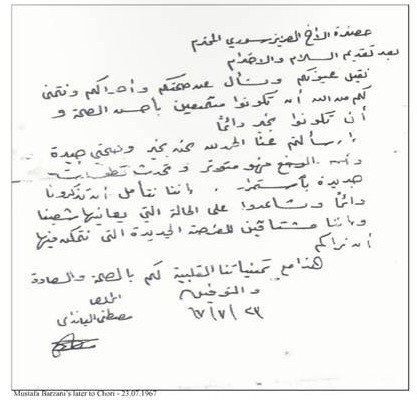 حضرة الأخ العزيز سوري المحترم
بعد تقديم السلام والاحترام
نقبل عيونكم ونسأل عن صحتكم وأحوالكم ونتمنى
لكم من الله أن تكونوا متمتعين بأحسن الصحة و
أن تكونوا بخير دائماً
إن سألتم عنا الحمد لله نحن بخير وصحتي جيدة
الوضع فهو متوتر و تحدث
جديدة باستمرار. إننا نتأمل أن تذكرونا
دائماً وتساعدوا على الحالة التي يعانيها شعبنا
وإننا مشتاقين للفرصة الجديدة التي نتمكن فيها
أن نراكم
هذا مع تمنياتنا القلبية لكم بالصحة والسعادة
و التوفيق
المخلص
مصطفى البارزاني
٢٣/٧/٦٧
Mustafa Barzani's later to Chori - 23.07.1967